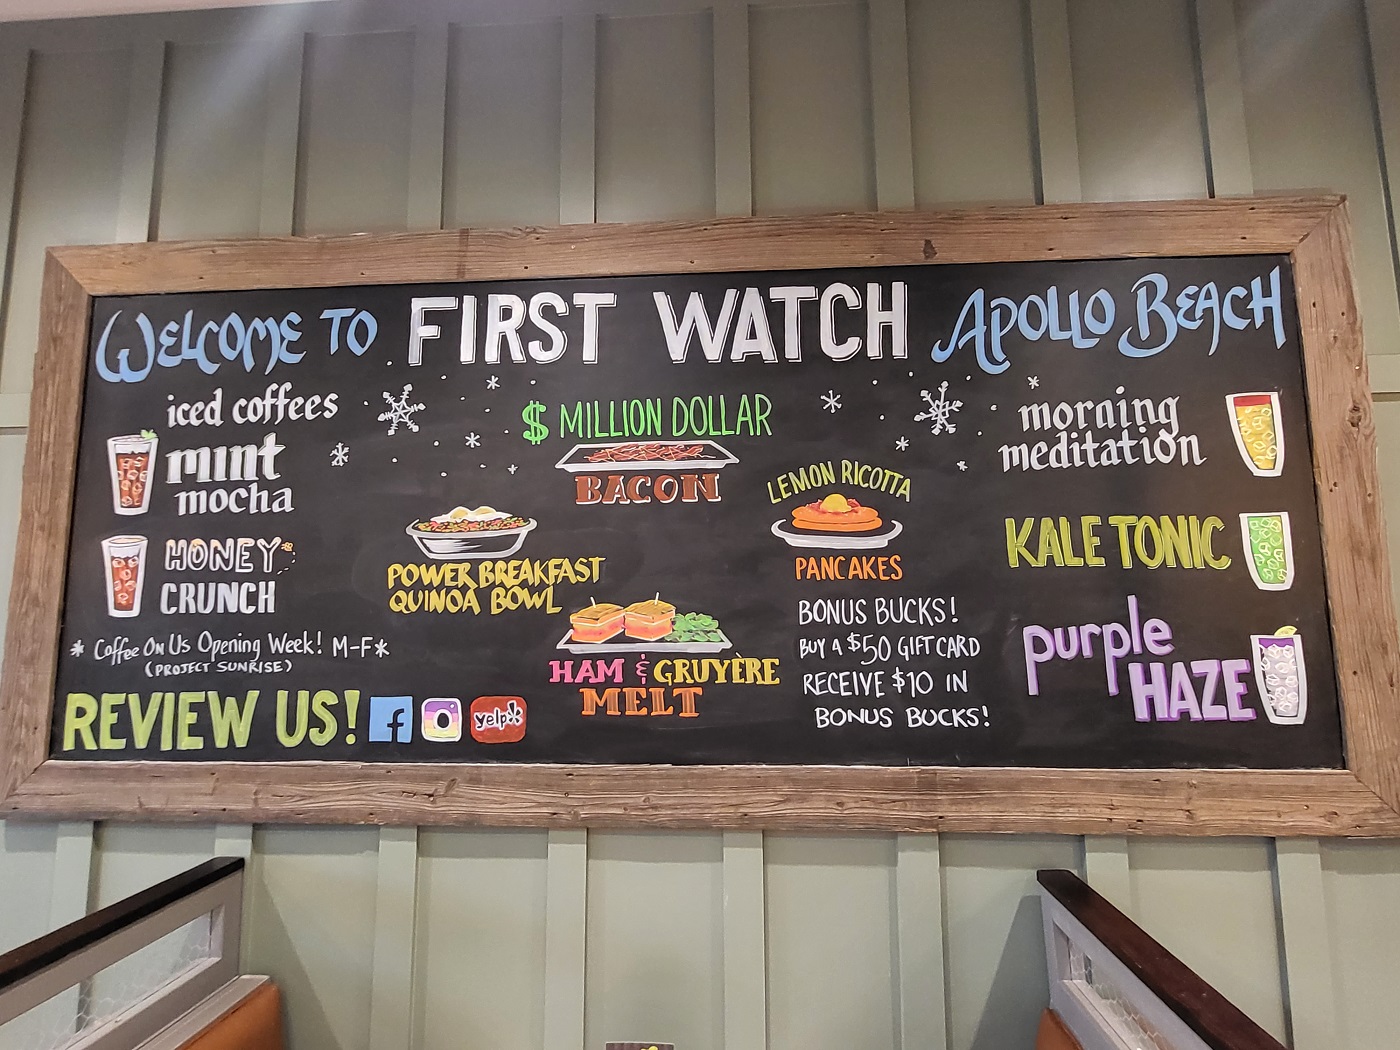 WELCOME TO FIRST WATCH APOLLO BEACH
iced coffees
mint
mocha
HONEY
CRUNCH
* Coffee On Us Opening Week! M-F *
(PROJECT SUNRISE)
REVIEW US! f yelp
$ MILLION DOLLAR
BACON
POWER BREAKFAST
QUINOA BOWL
LEMON RICOTTA
PANCAKES
HAM & GRUYÈRE
MELT
BONUS BUCKS!
BUY A $50 GIFT CARD
RECEIVE $10 IN
BONUS BUCKS!
morning
meditation
KALE TONIC
purple
HAZE